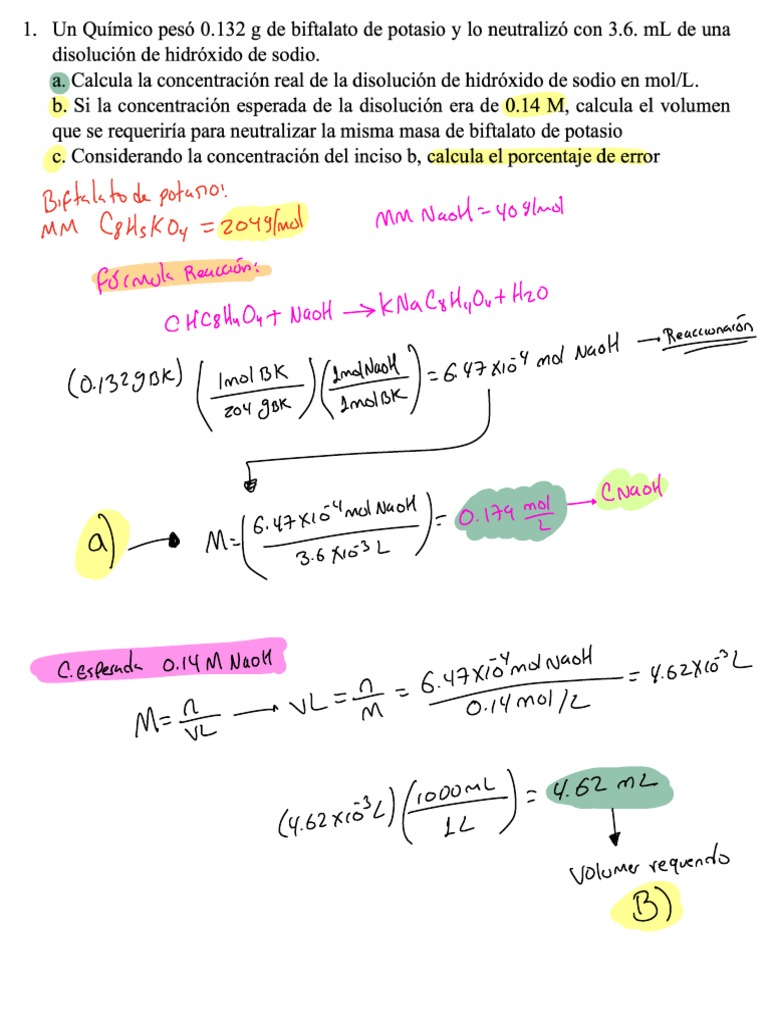 1. Un Químico pesó 0.132 g de biftalato de potasio y lo neutralizó con 3.6. mL de una
disolución de hidróxido de sodio.
a. Calcula la concentración real de la disolución de hidróxido de sodio en mol/L.
b. Si la concentración esperada de la disolución era de 0.14 M, calcula el volumen
que se requeriría para neutralizar la misma masa de biftalato de potasio
c. Considerando la concentración del inciso b, calcula el porcentaje de error
Biftalato de potasio:
MM C8H5KO4 = 204g/mol
MM NaOH = 40 g/mol
Fórmula Reacción:
CHC8H4O4 + NaOH → KNaC8H4O4 + H2O
(0.132gBK) (1mol BK / 204 gBK) (1molNaOH / 1molBK) = 6.47 x10⁻⁴ mol NaOH → Reaccionarón
a) → M = (6.47 x10⁻⁴ mol NaOH / 3.6 x10⁻³ L) = 0.179 mol/L → CNaOH
C. esperada 0.14 M NaOH
M = n/VL → VL = n/M = 6.47 x10⁻⁴ mol NaOH / 0.14 mol/L = 4.62x10⁻³ L
(4.62 x10⁻³ L) (1000mL / 1L) = 4.62 mL
Volumen requerido
B)